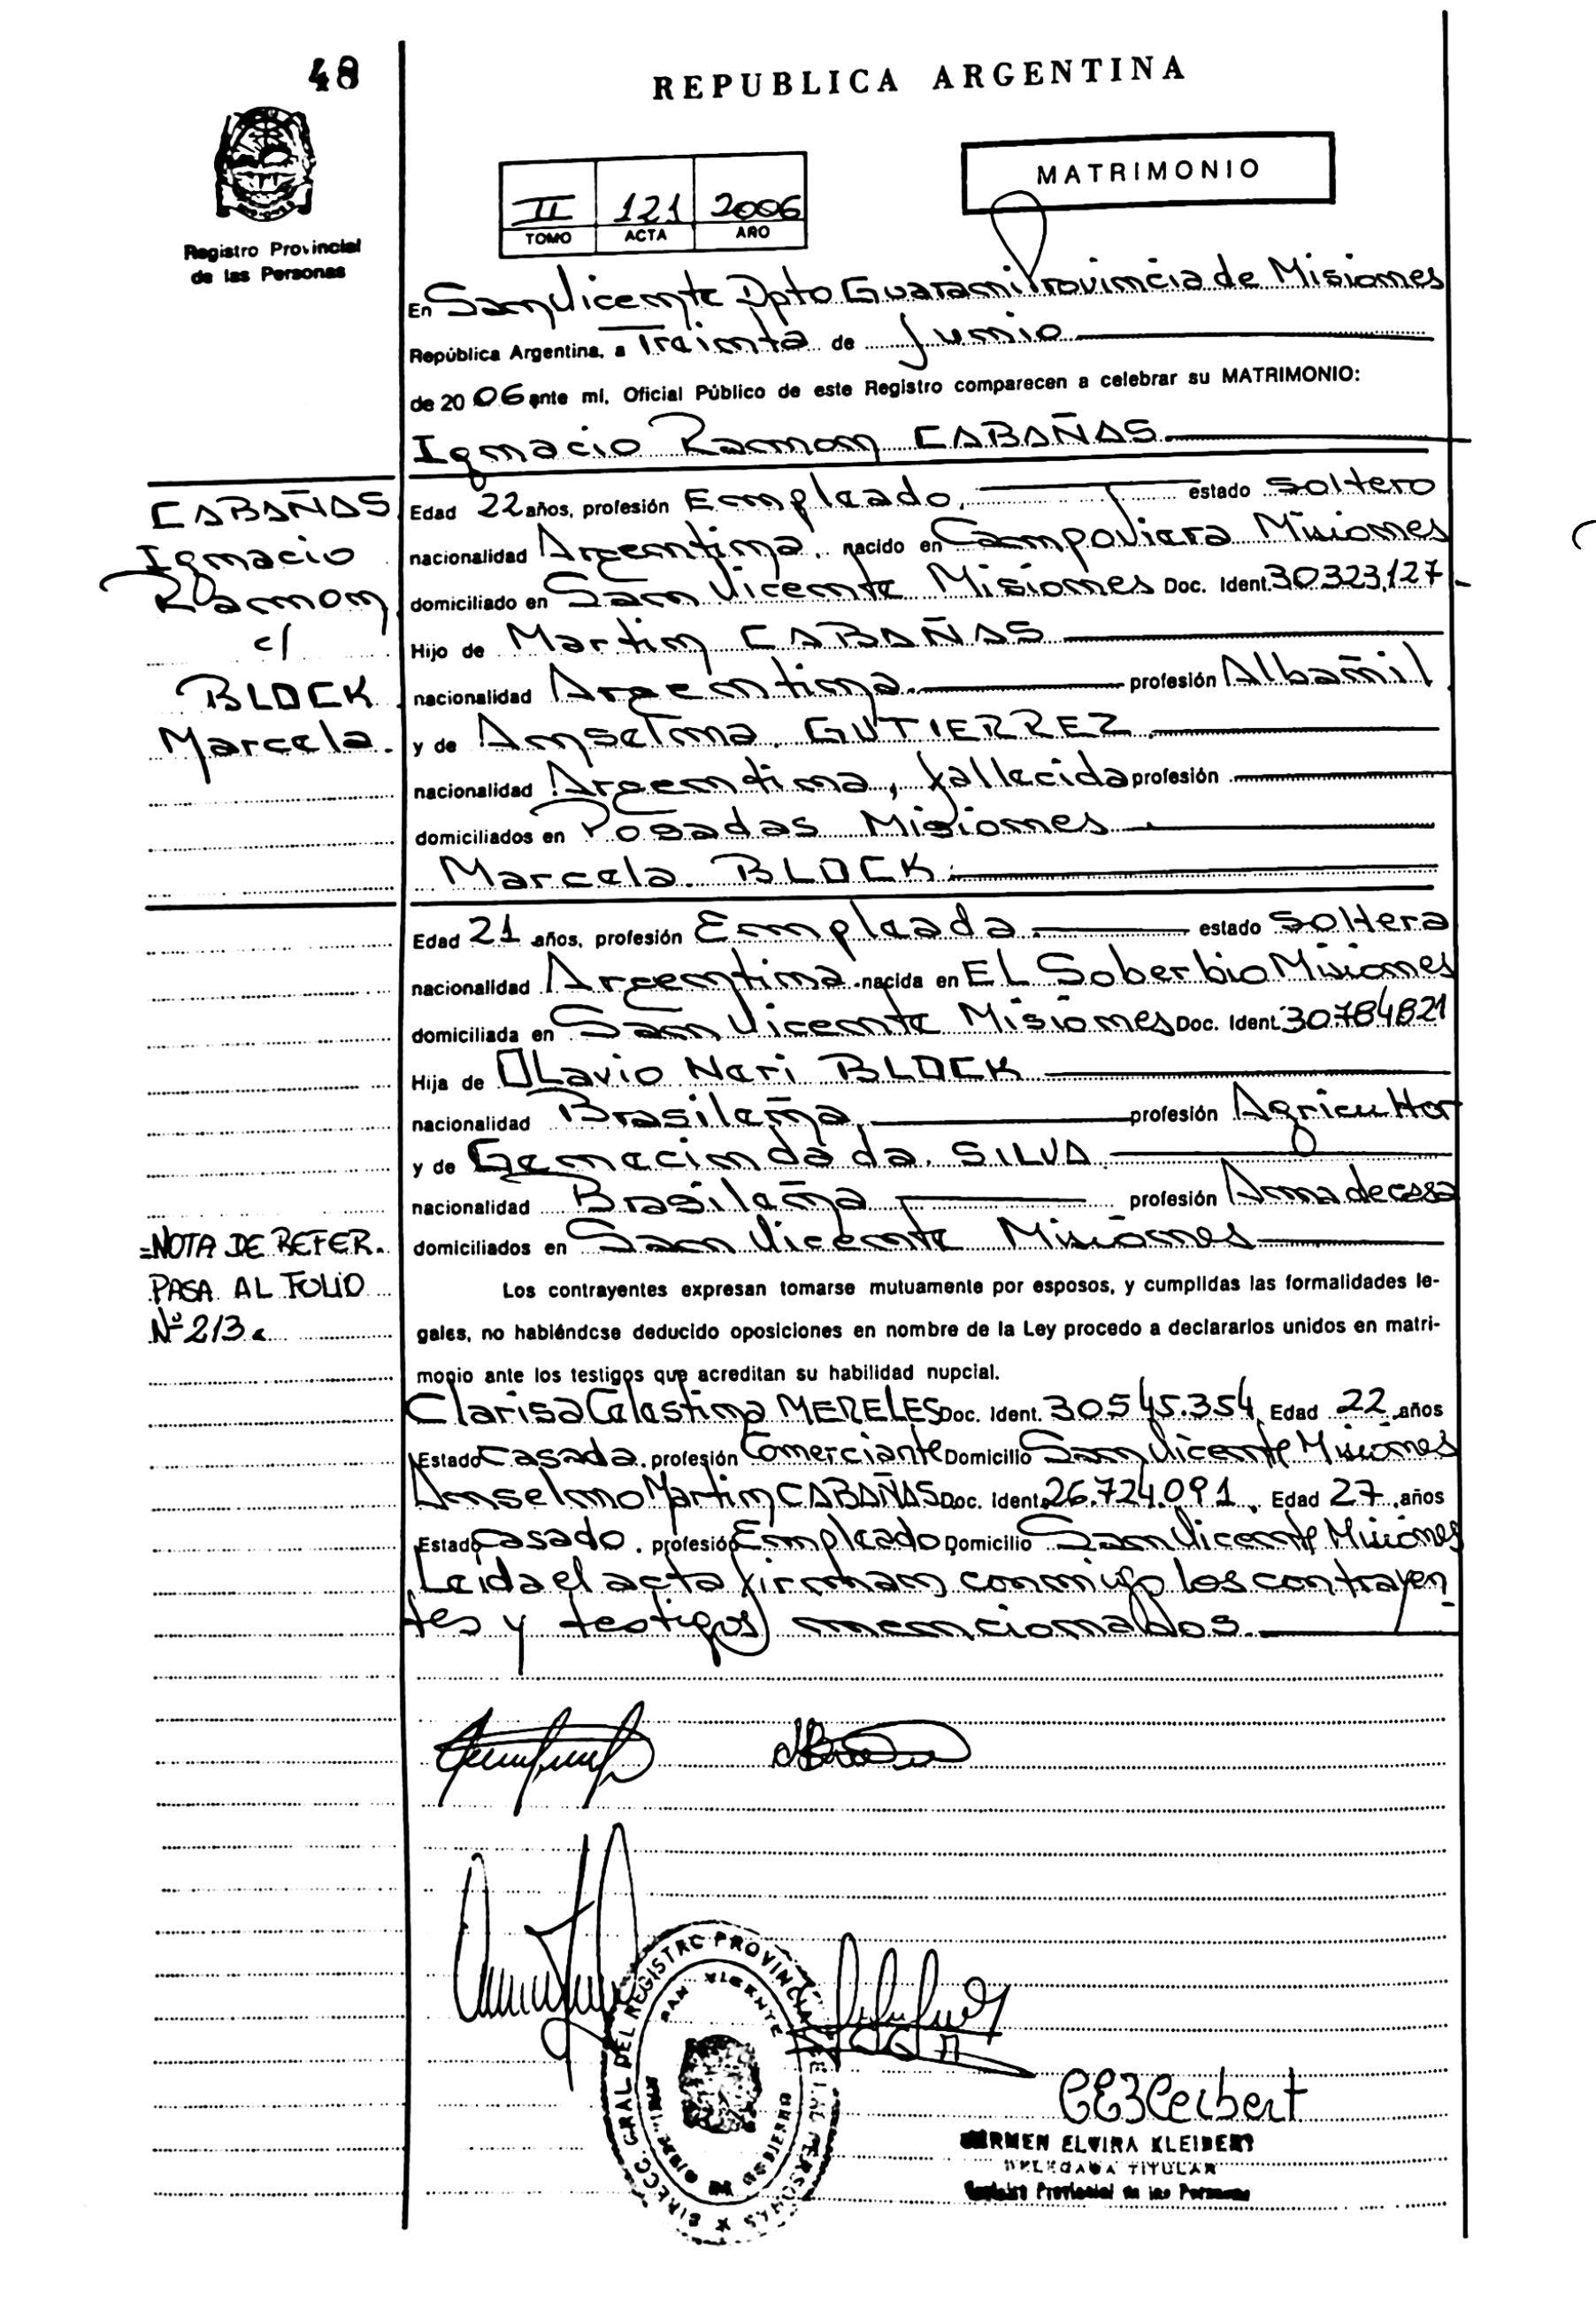 48
REPUBLICA ARGENTINA
MATRIMONIO
II 121 2006
TOMO ACTA AÑO
Registro Provincial
de las Personas
En San Vicente Dpto Guarani Provincia de Misiones
República Argentina, a Treinta de Junio
de 2006 ante mí, Oficial Público de este Registro comparecen a celebrar su MATRIMONIO:
Ignacio Ramon CABAÑAS
CABAÑAS
Ignacio
Ramon
c/
BLOCK
Marcela
Edad 22 años, profesión Empleado, estado soltero
nacionalidad Argentina, nacido en Campo Viera Misiones
domiciliado en San Vicente Misiones Doc. Ident. 30323,127
Hijo de Martin CABAÑAS
nacionalidad Argentina profesión Albañil
y de Anselma GUTIERREZ
nacionalidad Argentina, fallecida profesión
domiciliados en Posadas Misiones
Marcela BLOCK
Edad 21 años, profesión Empleada estado soltera
nacionalidad Argentina nacida en EL Soberbio Misiones
domiciliada en San Vicente Misiones Doc. Ident. 30784821
Hija de OLavio Neri BLOCK
nacionalidad Brasileña profesión Agricultor
y de Genecinda da SILVA
nacionalidad Brasileña profesión Ama de casa
domiciliados en San Vicente Misiones
=NOTA DE REFER.
PASA AL FOLIO
Nº 213
Los contrayentes expresan tomarse mutuamente por esposos, y cumplidas las formalidades le-
gales, no habiéndose deducido oposiciones en nombre de la Ley procedo a declararlos unidos en matri-
monio ante los testigos que acreditan su habilidad nupcial.
Clarisa Celestina MERELES Doc. Ident. 30545.354 Edad 22 años
Estado Casada, profesión Comerciante Domicilio San Vicente Misiones
Anselmo Martin CABAÑAS Doc. Ident. 26.724.091, Edad 27 años
Estado Casado, profesión Empleado Domicilio San Vicente Misiones
Leida el acta firman conmigo los contrayen-
tes y testigos mencionados.
DIRECC. GRAL DEL REGISTRO PROVINCIAL DE LAS PERSONAS
SAN VICENTE
CARMEN ELVIRA KLEIBERT
DELEGADA TITULAR
Registro Provincial de las Personas